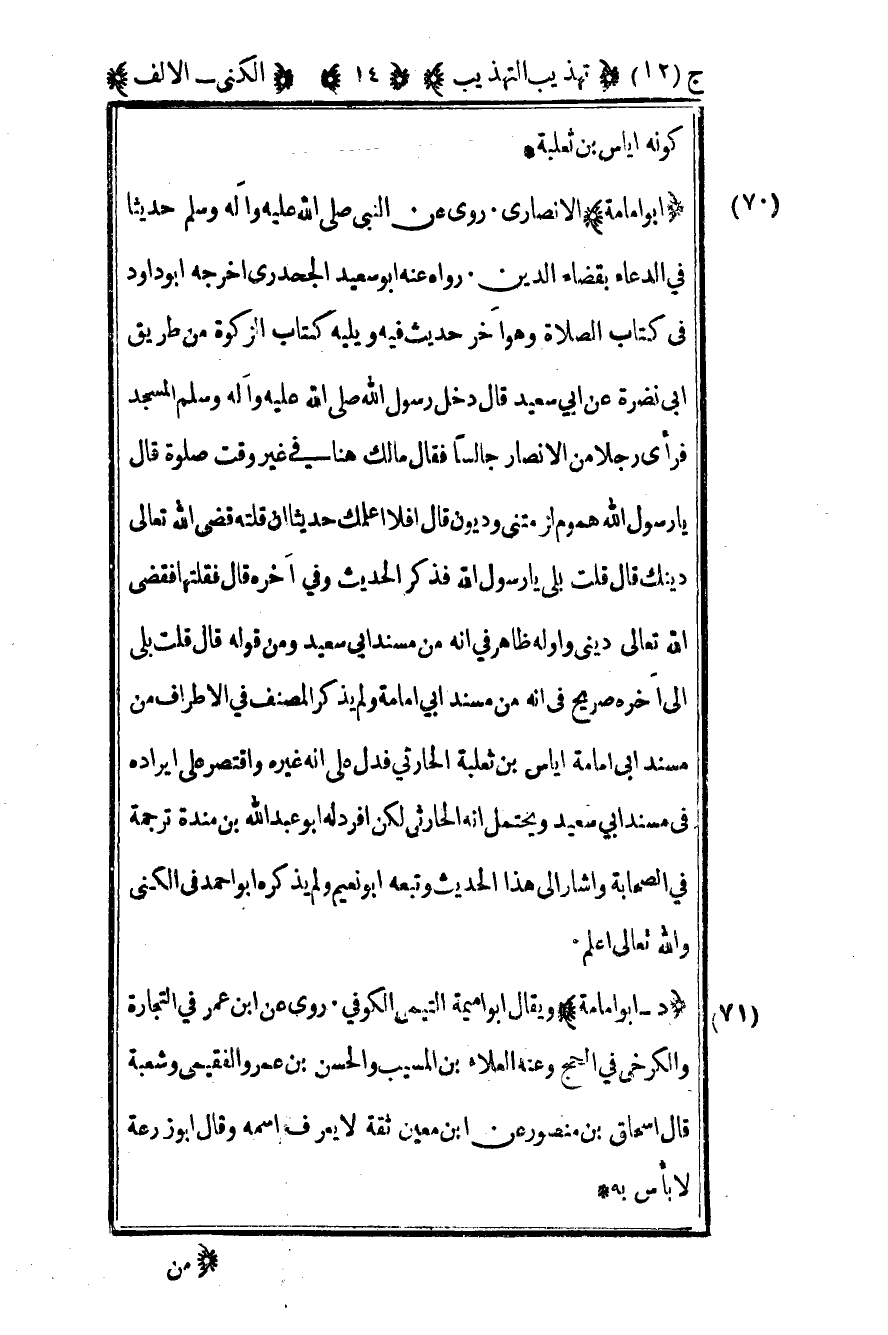 ج (١٢) ﴿ تهذيب التهذيب ﴾ ﴿ ١٤ ﴾ ﴿ الكنى ـ الالف ﴾
كونه اياس بن ثعلبة *
(٧٠) ﴿ ابو امامة ﴾ الانصارى · روى عن النبى صلى الله عليه وآله وسلم حديثا
في الدعاء بقضاء الدين · رواه عنه ابو سعيد الجحدرى اخرجه ابوداود
فى كتاب الصلاة وهو آخر حديث فيه ويليه كتاب الزكوة من طريق
ابى نضرة عن ابي سعيد قال دخل رسول الله صلى الله عليه وآله وسلم المسجد
فرأى رجلا من الانصار جالسا فقال مالك هنا في غير وقت صلوة قال
يا رسول الله هموم لزمتنى وديون قال افلا اعلمك حديثا ان قلته قضى الله تعالى
دينك قال قلت بلى يا رسول الله فذكر الحديث وفي آخره قال فقلتها فقضى
الله تعالى دينى واوله ظاهر في انه من مسند ابي سعيد ومن قوله قال قلت بلى
الى آخره صريح فى انه من مسند ابي امامة ولم يذكر المصنف في الاطراف من
مسند ابى امامة اياس بن ثعلبة الحارثي فدل على انه غيره واقتصر على ايراده
فى مسند ابي سعيد ويحتمل انه الحارثى لكن افرد له ابو عبد الله بن مندة ترجمة
في الصحابة واشار الى هذا الحديث وتبعه ابو نعيم ولم يذكره ابو احمد فى الكنى
والله تعالى اعلم ·
(٧١) ﴿ د ـ ابو امامة ﴾ ويقال ابو اميمة التيمى الكوفي · روى عن ابن عمر في التجارة
والكرخى في الحج وعنه العلاء بن المسيب والحسن بن عمرو الفقيمى وشعبة
قال اسحاق بن منصور عن ابن معين ثقة لا يعرف اسمه وقال ابو زرعة
لا بأس به *
﴿ من